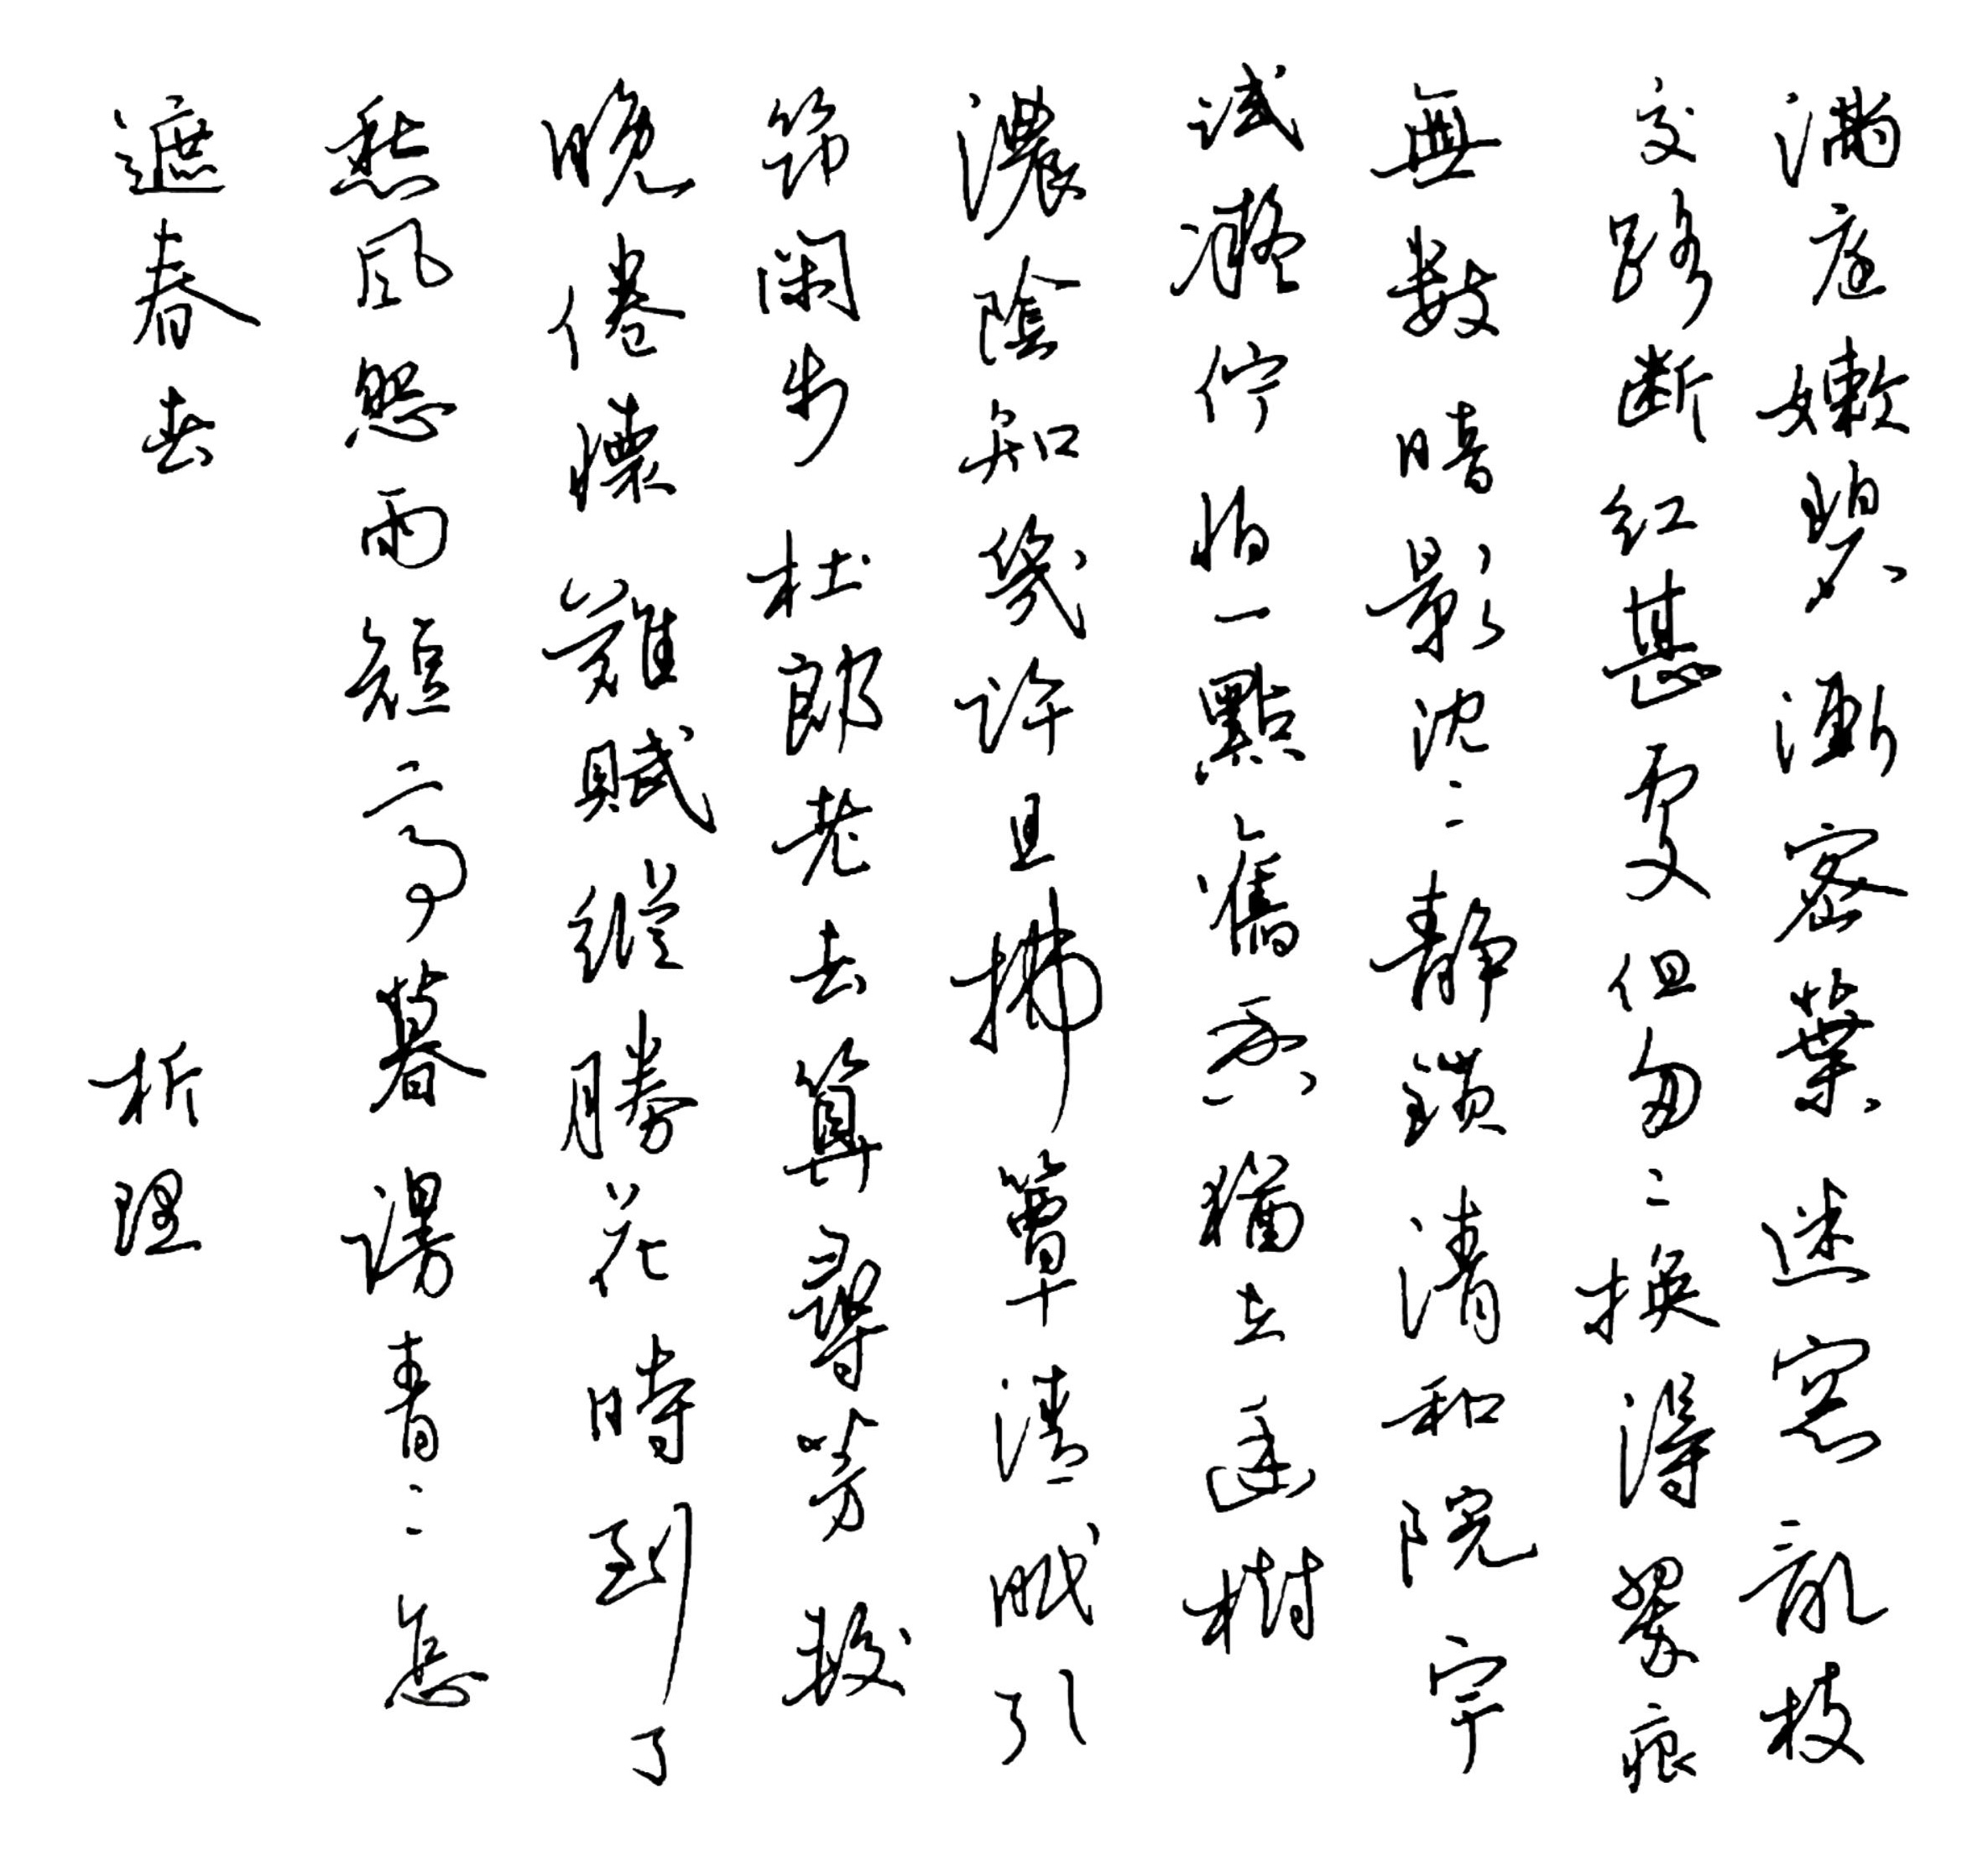 滿庭嫩碧漸密葉迷窓亂枝
交路断紅甚處但匆々換得翠痕
無數暗影沈々靜鎖清和院宇
試凝佇怕一點舊香猶在幽樹
濃陰知幾許且拂簟清眠引
筇閑步杜郎老去算尋芳較
晚倦懷難賦縱勝花時到了
愁風怨雨短亭暮謾青々怎
遮春去 析理